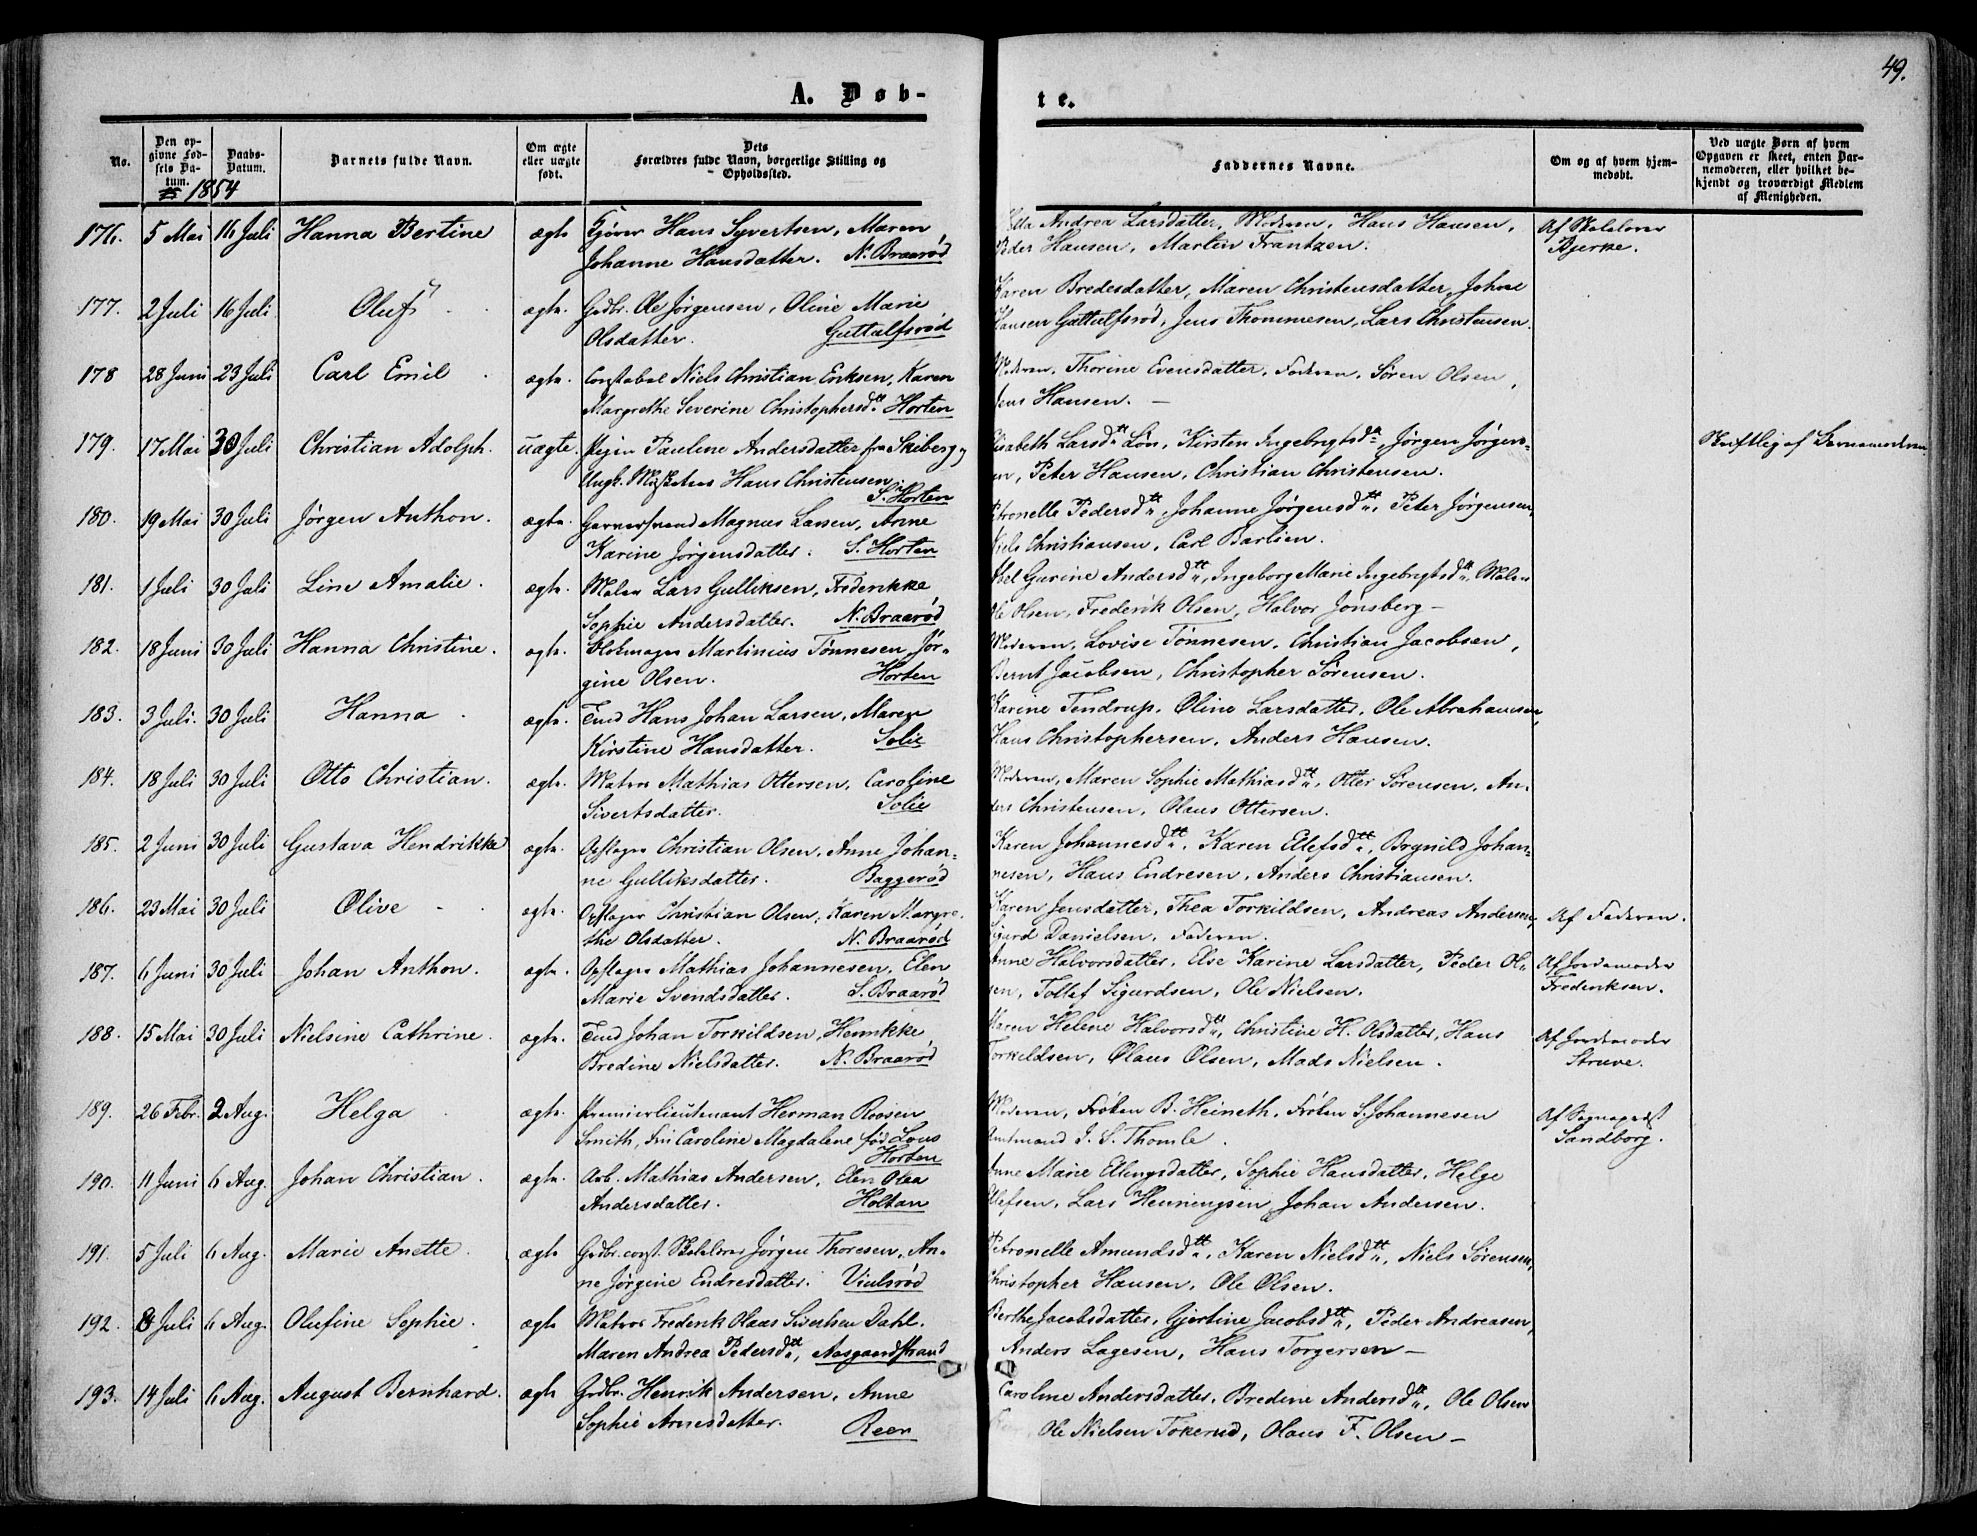 49.
A. Døb-
te.
No.
Den opgivne Fødsels Datum.
Daabs-Datum.
Barnets fulde Navn.
Om ægte eller uægte født.
Dets Forældres fulde Navn, borgerlige Stilling og Opholdssted.
Faddernes Navne.
Om og af hvem hjemmedøbt.
Ved uægte Børn af hvem Opgaven er skeet, enten Barnemoderen, eller hvilket bekjendt og troværdigt Medlem af Menigheden.
1854
176. 5 Mai 16 Juli Hanna Bertine ægte Hans Syvertsen, Maren
Johanne Hansdatter. N. Braarød
Andrea Larsdatter, Moderen, Hans Hansen,
Peder Hansen, Martin Frantzen.
Af Skolelærer
Bjerke.
177. 2 Juli 16 Juli Oluf ægte. Grdbr. Ole Jørgensen, Oline Marie
Olsdatter. Guttulfsrød
Karen Bredesdatter, Maren Christensdatter, Johne
Hansen Guttulfsrød, Jens Thommesen, Lars Christensen.
178 28 Juni 23 Juli Carl Emil ægte. Constabel Niels Christian Eriksen, Karen
Margrethe Severine Christophersdtt. Horten
Moderen, Thorine Evensdatter, Faderen, Søren Olsen,
Jens Hansen. —
179. 17 Mai 30 Juli Christian Adolph. uægte. Pigen Pauline Andersdatter fra Skiberg og
Ungk. Hans Christensen. S. Horten
Lisabeth Larsdtt. Løn, Kirsten Ingebrigtsdtt, Jørgen Jørgen-
sen, Peter Hansen, Christian Christensen.
Skriftlig af Barnemoderen
180. 19 Mai 30 Juli Jørgen Anthon. ægte. Garversvend Magnus Larsen, Anne
Karine Jørgensdatter. S. Horten
Petronelle Pedersdtt, Johanne Jørgensdtt, Peter Jørgensen,
Niels Christiansen, Carl Barlien.
181. 1 Juli 30 Juli Line Amalie. ægte. Maler Lars Gulliksen, Frederikke
Sophie Andersdatter. N. Braarød
Abel Gurine Andersdtt, Ingeborg Marie Ingebrigtsdtt, Maler
Ole Olsen, Frederik Olsen, Halvor Jønsberg —
182. 18 Juni 30 Juli Hanna Christine. ægte. Blokmager Martinius Tønnesen, Jør-
gine Olsen. Horten
Moderen, Lovise Tønnesen, Christian Jacobsen,
Bernt Jacobsen, Christopher Sørensen.
183. 3 Juli. 30 Juli Hanna ægte. Tmd Hans Johan Larsen, Maren
Kirstine Hansdatter. Solie
Karine Tendrup, Oline Larsdatter, Ole Abrahamsen,
Hans Christophersen, Anders Hansen.
184. 18 Juli 30 Juli Otto Christian. ægte. Matros Mathias Ottersen, Caroline
Sivertsdatter. Solie
Moderen, Maren Sophie Mathiasdtt, Otter Sørensen, An-
ders Christensen, Olaus Ottersen.
185. 2 Juni 30 Juli Gustava Hendrikke ægte. Opslager Christian Olsen, Anne Johan-
ne Gulliksdatter. Baggerød
Karen Johannesdtt, Karen Elefsdtt, Brynild Johan-
nesen, Hans Endresen, Anders Christiansen.
186. 23 Mai 30 Juli Olive ægte. Opslager Christian Olsen, Karen Margre-
the Olsdatter. N. Braarød
Karen Jensdatter, Thea Torkildsen, Andreas Andersen,
Sigurd Danielsen, Faderen.
Af Faderen.
187. 6 Juni 30 Juli Johan Anthon. ægte. Opslager Mathias Johannesen, Elen
Marie Svendsdatter. S. Braarød
Anne Halvorsdatter, Else Karine Larsdatter, Peder Ol-
sen, Tollef Sigurdsen, Ole Nielsen.
Af Jordemoder
Frederiksen.
188. 15 Mai 30 Juli Nielsine Cathrine. ægte. Tmd Johan Torkildsen, Henrikke
Bredine Nielsdatter. N. Braarød
Maren Helene Halvorsdtt, Christine H. Olsdatter, Hans
Torkildsen, Olaus Olsen, Mads Nielsen.
Af Jordemoder
Struve.
189. 26 Febr. 2 Aug. Helga ægte. Premierlieutenant Herman Roosen
Smith, Fru Caroline Magdalene fød Lous
Horten
Moderen, Frøken B. Heineth, Frøken S. Johannesen
Amtmand J. S. Thomle.
Af Sognepræst
Sandborg.
190. 11 Juni 6 Aug. Johan Christian. ægte. Arb. Mathias Andersen, Elen Olea
Andersdatter. Holtan
Anne Marie Ellingsdatter, Sophie Hansdatter, Helge
Olefsen, Lars Henningsen, Johan Andersen.
191. 5 Juli 6 Aug. Marie Anette. ægte Grdbr. const. Skolelærer Jørgen Thoresen, An-
ne Jørgine Endresdatter. Viulsrød
Petronelle Amundsdtt, Karen Nielsdtt, Niels Sørensen,
Christopher Hansen, Ole Olsen.
192. 8 Juli 6 Aug. Olufine Sophie. ægte Matros Frederik Olaus Sivertsen Dahl.
Maren Andrea Pedersdtt, Aasgaardstrand
Berthe Jacobsdatter, Gjertine Jacobsdtt, Peder Andreasen,
Anders Lagesen, Hans Torgersen —
193. 14 Juli 6 Aug. August Bernhard. ægte Grdbr. Henrik Andersen, Anne
Sophie Arnesdatter. Reen
Caroline Andersdatter, Bredine Andersdtt, Ole Olsen
Ole Nielsen Tokerud, Olaus F. Olsen —